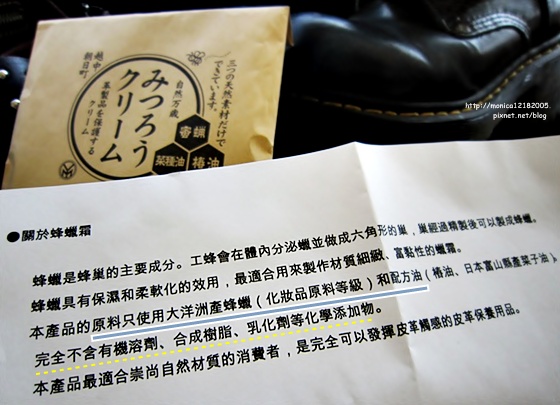 http://monica12182005.
pixnet.net/blog
三つの天然素材だけで
できています。
自然万歳
みつろう
クリーム
革製品を保護する
クリーム
越中
朝日町
蜜蝋
菜種油
椿油
●關於蜂蠟霜
蜂蠟是蜂巢的主要成分。工蜂會在體內分泌蠟並做成六角形的巢，巢經過精製後可以製成蜂蠟。
蜂蠟具有保濕和柔軟化的效用，最適合用來製作材質細緻、富黏性的蠟霜。
本產品的原料只使用大洋洲產蜂蠟（化妝品原料等級）和配方油（椿油、日本富山縣產菜子油），
完全不含有機溶劑、合成樹脂、乳化劑等化學添加物。
本產品最適合崇尚自然材質的消費者，是完全可以發揮皮革觸感的皮革保養用品。